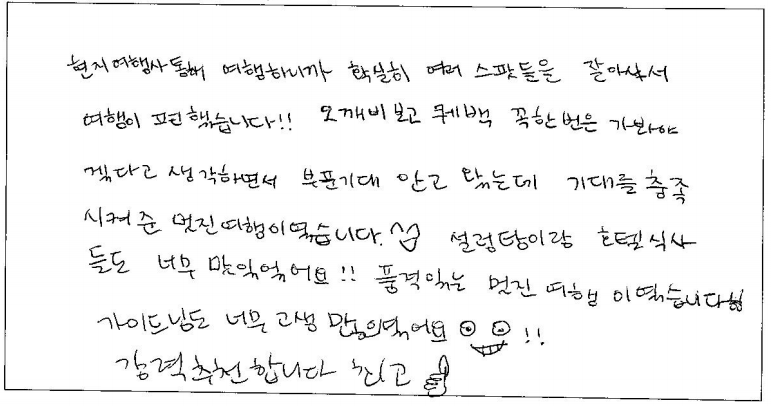 현지여행사통해 여행하니까 확실히 여러 스팟들을 잘아셔서
여행이 편했습니다!! 도깨비보고 퀘백 꼭한번은 가봐야
겠다고 생각하면서 부푼기대 안고 왔는데 기대를 충족
시켜준 멋진여행이였습니다. 설렁탕이랑 호텔식사
들도 너무 맛있었어요!! 품격있는 멋진 여행 이였습니다
가이드님도 너무 고생 많으셨어요 !!
강력추천합니다 최고